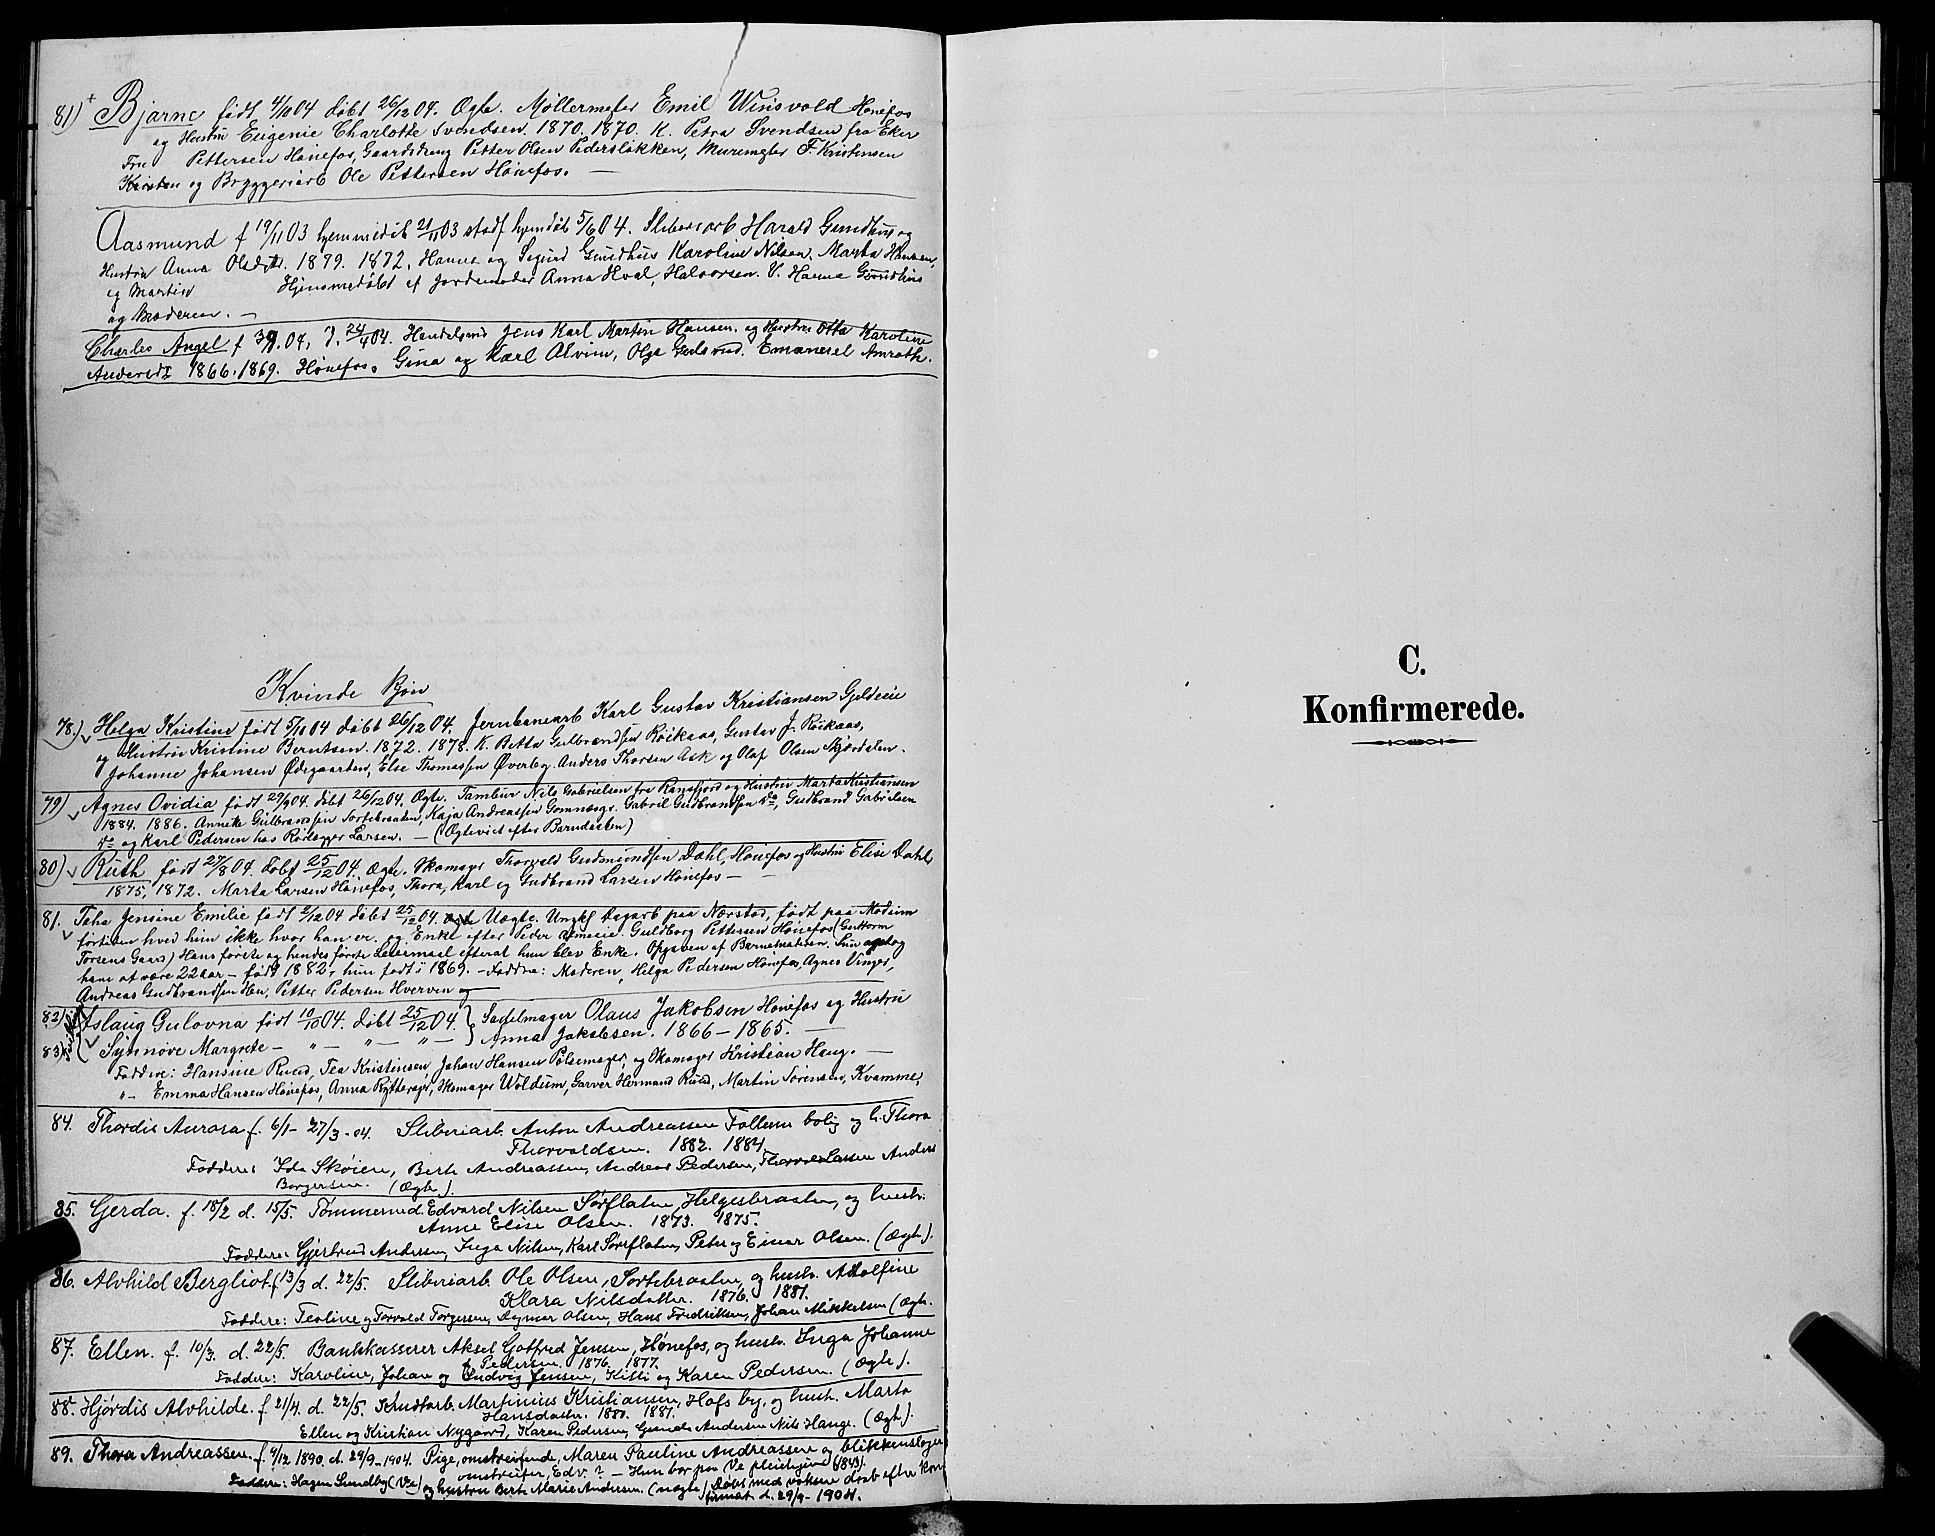 81) Bjarne født 4/10 04 døbt 26/12 04. Ægte. Møllermester Emil Winsvold Hønefos
og Hustru Eugenie Charlotte Svendsen. 1870. 1870. K. Petra Svendsen fra Eker
Pettersen Hønefos, Gaardsdreng Petter Olsen Pedersløkken, Muremester F. Kristensen
og Bryggeriarb Ole Pettersen Hønefos. —
Aasmund f 19/11 03 hjemmedøbt 21/11 03 stadf hjemdøb 5/6 04. Sliberiarb Harald Gundhus og
Hustru Anna Olsdtr. 1879. 1872. Hanna og Sigurd Gundhus Karoline Nilsen. Marta Hansen,
og Martin Hjemmedøbt af Jordemoder Anna Hval, Halvorsen. V. Hanna Gundhus
og Moderen. —
Charles Angel f 04, 24/4 04. Handelsmd Jens Karl Martin Hansen. og Hustru Otta Karoline
Andersdt 1866. 1869. Hønefos. Gina og Karl Alvim, Olga Emanuel Amroth.
Kvinde Kjøn
78.) Helga Kristine født 5/10 04 døbt 26/12 04. Jernbanearb Karl Gustav Kristiansen Gjeldeeie
og Hustru Kristine Berntsen. 1872. 1878. K. Betta Gulbrandsen Røikaas, Gustav J. Røikaas,
Johanne Johansen Ødegaarden, Else Thomassen Øverby. Anders Thorsen Ask og Olaf Olsen Stjørdalen.
79) Agnes Ovidia født 29/9 04. døbt 26/12 04. Ægte. Tambur Nils Gabrielsen fra Ransfjord og Hustru Marta Kristiansen
1884. 1886. Annette Gulbransen Sortebraaten, Kaja Andreassen Gomnæsgr. Gabriel Gudbrandsen do, Gudbrand Gabrielsen
do og Karl Pedersen hos Rørlægger Larsen. — (Ægteviet efter Barndaaben)
80) Ruth født 27/8 04. døbt 25/12 04. Ægte. Skomager Thorvald Gudmundsen Dahl, Hønefos og Hustru Elise Dahl,
1875, 1872. Marta Larsen Hønefos, Thora, Karl og Gudbrand Larsen Hønefos —
81. Jensine Emilie født 2/12 04 døbt 25/12 04. Uægte. Ungkf Dagarb paa Nærstad, født paa Modum
fortiden hved hun ikke hvor han er. og Enke efter Peder Guldborg Pettersen Hønefos (Guttorm
Torsens Gaard) Hans første og hendes første Leiermaal efterat hun blev Enke. Opgaven af Barnemoderen. Hun antog
ham at være 22 aar — født 1882, hun født i 1869. — Faddre: Moderen, Helga Pedersen Hønefos, Agnes Vinger,
Andreas Gudbrandsen Hen, Petter Pedersen Hverven og
82) Aslaug Gulovna født 10/10 04. døbt 25/12 04. } Sadelmager Olaus Jakobsen Hønefos og Hustru
83) Synnøve Margrete — " — " — " — } Anna Jakobsen. 1866 — 1865.
Faddre: Hansine Ruud, Tea Kristensen, Johan Hansen Pølsemager, og Skomager Kristian Haug. —
" — Emma Hansen Hønefos, Anna Rytteragr, Skomager Woldum, Garver Hermand Ruud, Martin Sørensen, Kvamme,
84. Thordis Aurora f. 6/1 — 27/3 - 04. Sliberiarb. Anton Andreassen Follum bolig og h. Thora
Thorvaldsen. 1882. 1884
Faddere: Ida Skøien, Berth Andreassen, Andreas Pedersen, Thorvald Larsen Anders
Borgersen. (Ægte).
85. Gerda. f. 18/2 d. 15/5. Tømmermd. Edvard Nilsen Sørflaten, Helgesbraaten, og hustr.
Anne Elise Olsen. 1873. 1875.
Faddere: Gjertrud Andersen, Inga Nilsen, Karl Sørflaten, Peter og Einar Olsen. (Ægte).
86. Alvhild Bergliot f 13/3 d. 22/5. Sliberiarb. Ole Olsen, Sortebraaten, og hustr. Adolfine
Klara Nilsdatter. 1876. 1881.
Faddere: Teoline og Torvald Torgersen, Dagmar Olsen, Hans Fredriksen, Johan Mikkelsen (Ægte.
87. Ellen. f. 10/3. d. 22/5. Bankkasserer Aksel Gotfred Jensen, Hønefos, og hustr. Inga Johanne
Pedersen. 1876. 1877.
Faddere: Karoline, Johan og Ludvig Jensen, Kitti og Karen Pedersen. (Ægte).
88. Hjørdis Alvhilde. f 21/4. d. 22/5. Skudtarb. Martinius Kristiansen, Hofs by, og hustr. Marta
Hansdatter. 1880. 1881.
Ellen og Kristian Nygaard, Karen Pedersen, Gunda Andersen Nils Hauge. (Ægte).
89. Thora Andreassen. f. 4/12 1890. d. 29/9 - 1904. Pige, omstreifende, Maren Pauline Andreassen og blikkenslager
omstreifer, Edv. ? — Hun bor paa Ve pleiehjem (1843).
Faddere: Hagen Sundby (Ve) og hustru Berte Marie Andersen. (uægte) Døbt med voksen daab efter kon-
firmat. d. 29/9 - 1904.
C.
Konfirmerede.